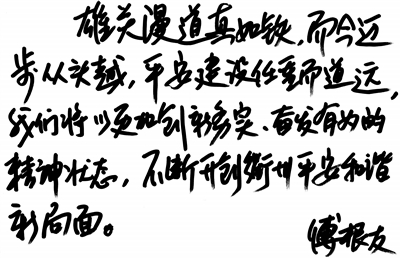 雄关漫道真如铁，而今迈
步从头越，平安建设任重而道远，
我们将以更加创新务实、奋发有为的
精神状态，不断开创衢州平安和谐
新局面。
傅根友